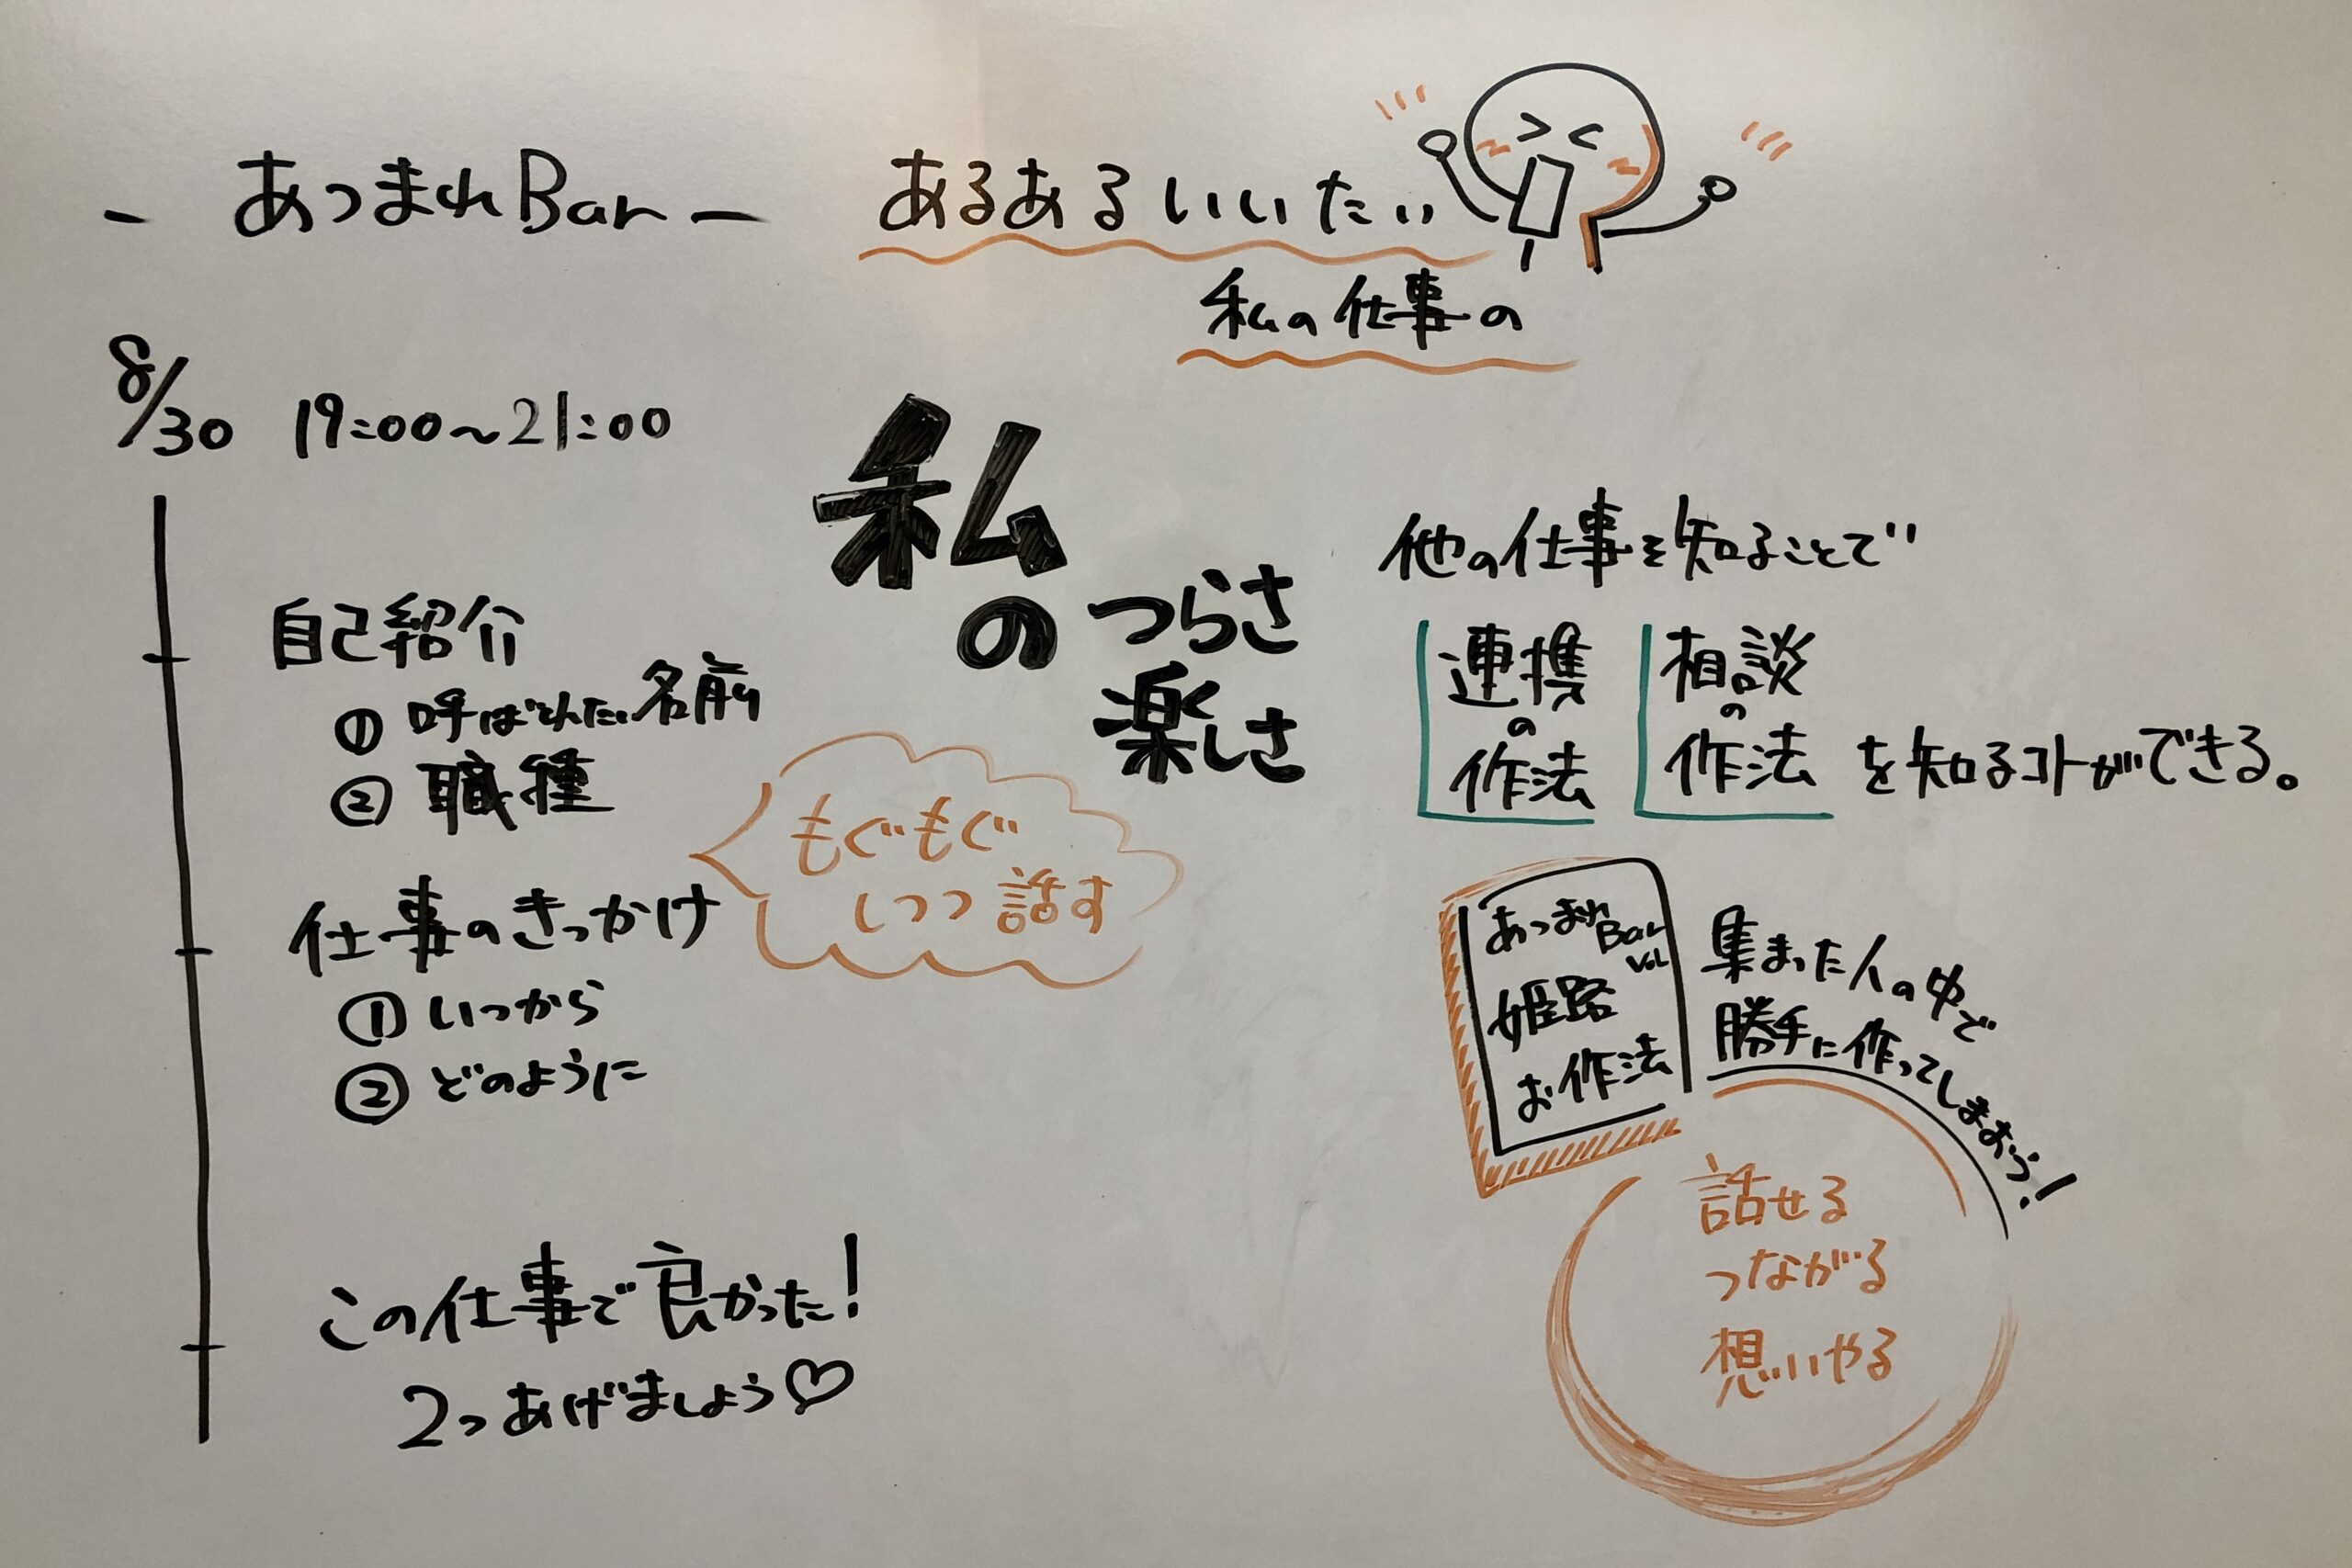 - あつまれBar -
あるあるいいたい
私の仕事の
8/30 19:00〜21:00
自己紹介
① 呼ばれたい名前
② 職種
仕事のきっかけ
① いつから
② どのように
この仕事で良かった!
2つあげましょう♡
私
の
つらさ
楽しさ
もぐもぐ
しつつ話す
他の仕事を知ることで
連携
の
作法
相談
の
作法
を知るコトができる。
あつまれBar
Vol
姫路
お作法
集まった人の中で
勝手に作ってしまおう!
話せる
つながる
想いやる